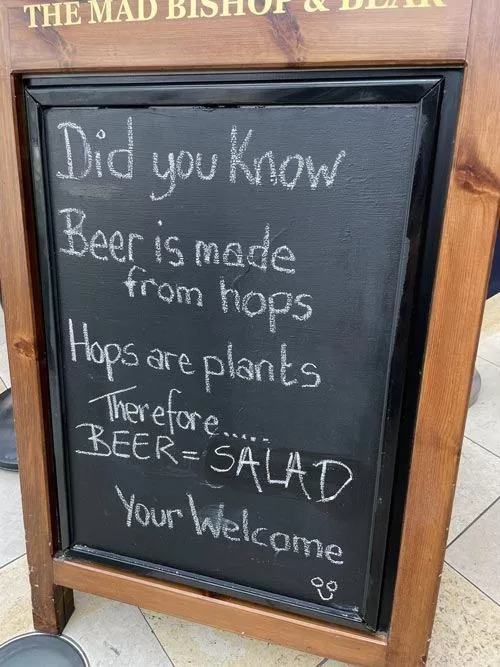 THE MAD BISHOP & BEAR
Did you Know
Beer is made
from hops
Hops are plants
Therefore.....
BEER = SALAD
Your Welcome